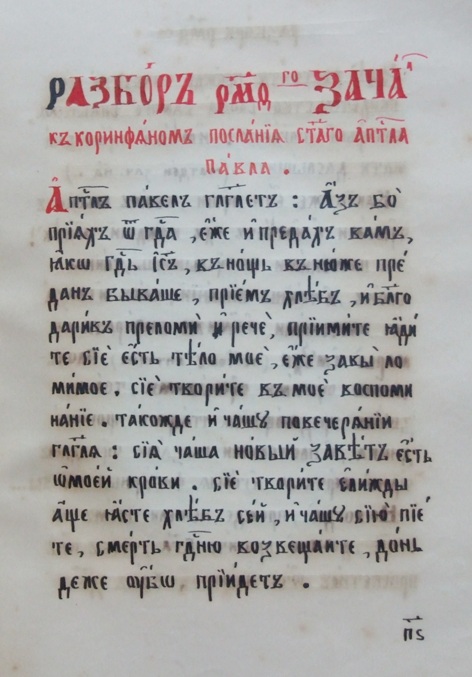 Разбо́ръ рм҃ѳ го Зача́л
къ коринѳѧ́номъ посла́нїѧ ст҃а́го а҆пⷭ҇тла
па́вла .
А҆пⷭ҇тлъ па́велъ гл҃глетъ : А҆́зъ бо̀
прїѧ́хъ ѿ гдⷭ҇а , є҆́же и҆ преда́хъ ва́мъ ,
ꙗ҆́кѡ гдⷭ҇ь і҆с҃ъ , въ но́щь въ ню́же пре́
данъ быва́ше , прїе́мъ хлѣ́бъ , и҆ бл҃го
дари́въ преломѝ и҆ речѐ , прїими́те ꙗ҆ди́
те сїѐ є҆́сть тѣ́ло моѐ , є҆́же за вы̀ ло
ми́мое . сїѐ твори́те въ моѐ воспоми
на́нїе . та́кожде и҆ ча́шу по вечера́нїи
гл҃гл́ѧ : сїѧ̀ ча́ша но́вый завѣ́тъ є҆́сть
ѡ҆ мое́й кро́ви . сїѐ твори́те є҆ли́жды
а҆́ще ꙗ҆́сте хлѣ́бъ се́й , и҆ ча́шу сїю̀ пїе́
те , сме́рть гдⷭ҇ню возвеща́йте , до́нь
де́же ᲂу҆́бѡ прїи́детъ .
п҃ѕ